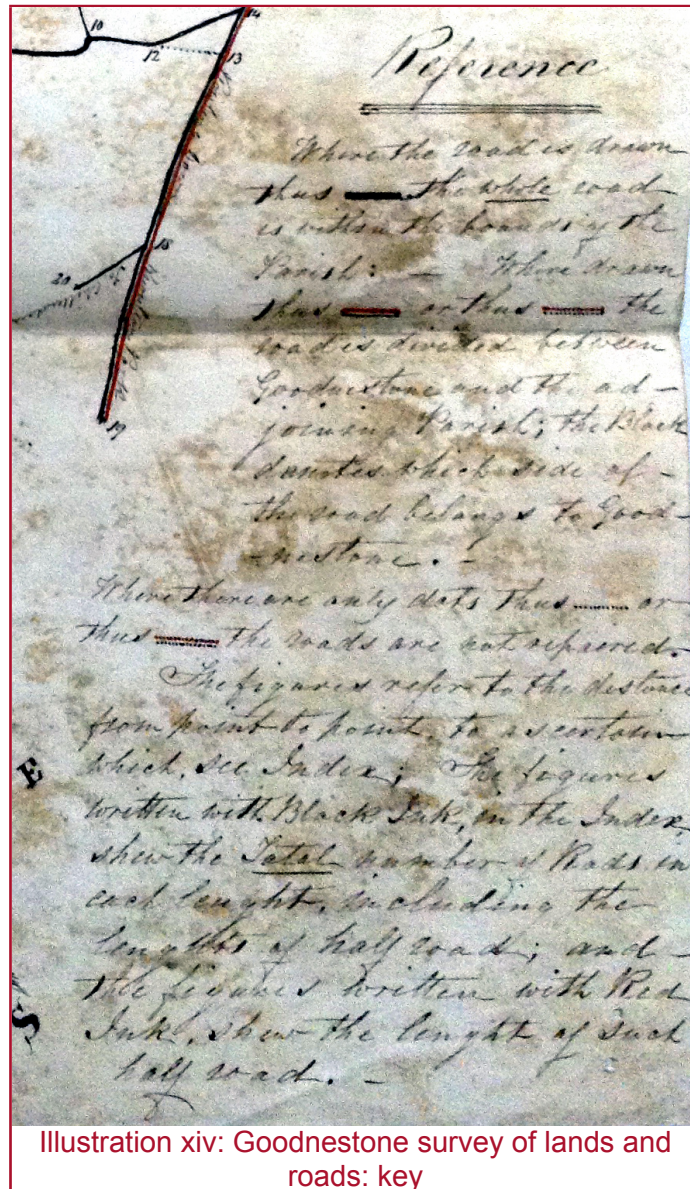 10
14
12
13
18
20
19
Reference
Where the road is drawn
thus the whole road
is within the bounds of the
Parish: — Where drawn
thus or thus the
road is divided between
Goodnestone and the ad-
joining Parish; the Black
denotes which side of -
the road belongs to Good-
-nestone. -
Where there are only dots thus or
thus the roads are not repaired.
The figures refer to the distance
from point to point, to ascertain
which, see Index; The figures
written with Black Ink, in the Index,
shew the Total number of Rods in
each lenght, including the
lenghts of half road; and -
the figures written with Red
Ink, shew the lenght of such
half road. -
E
S
Illustration xiv: Goodnestone survey of lands and
roads: key